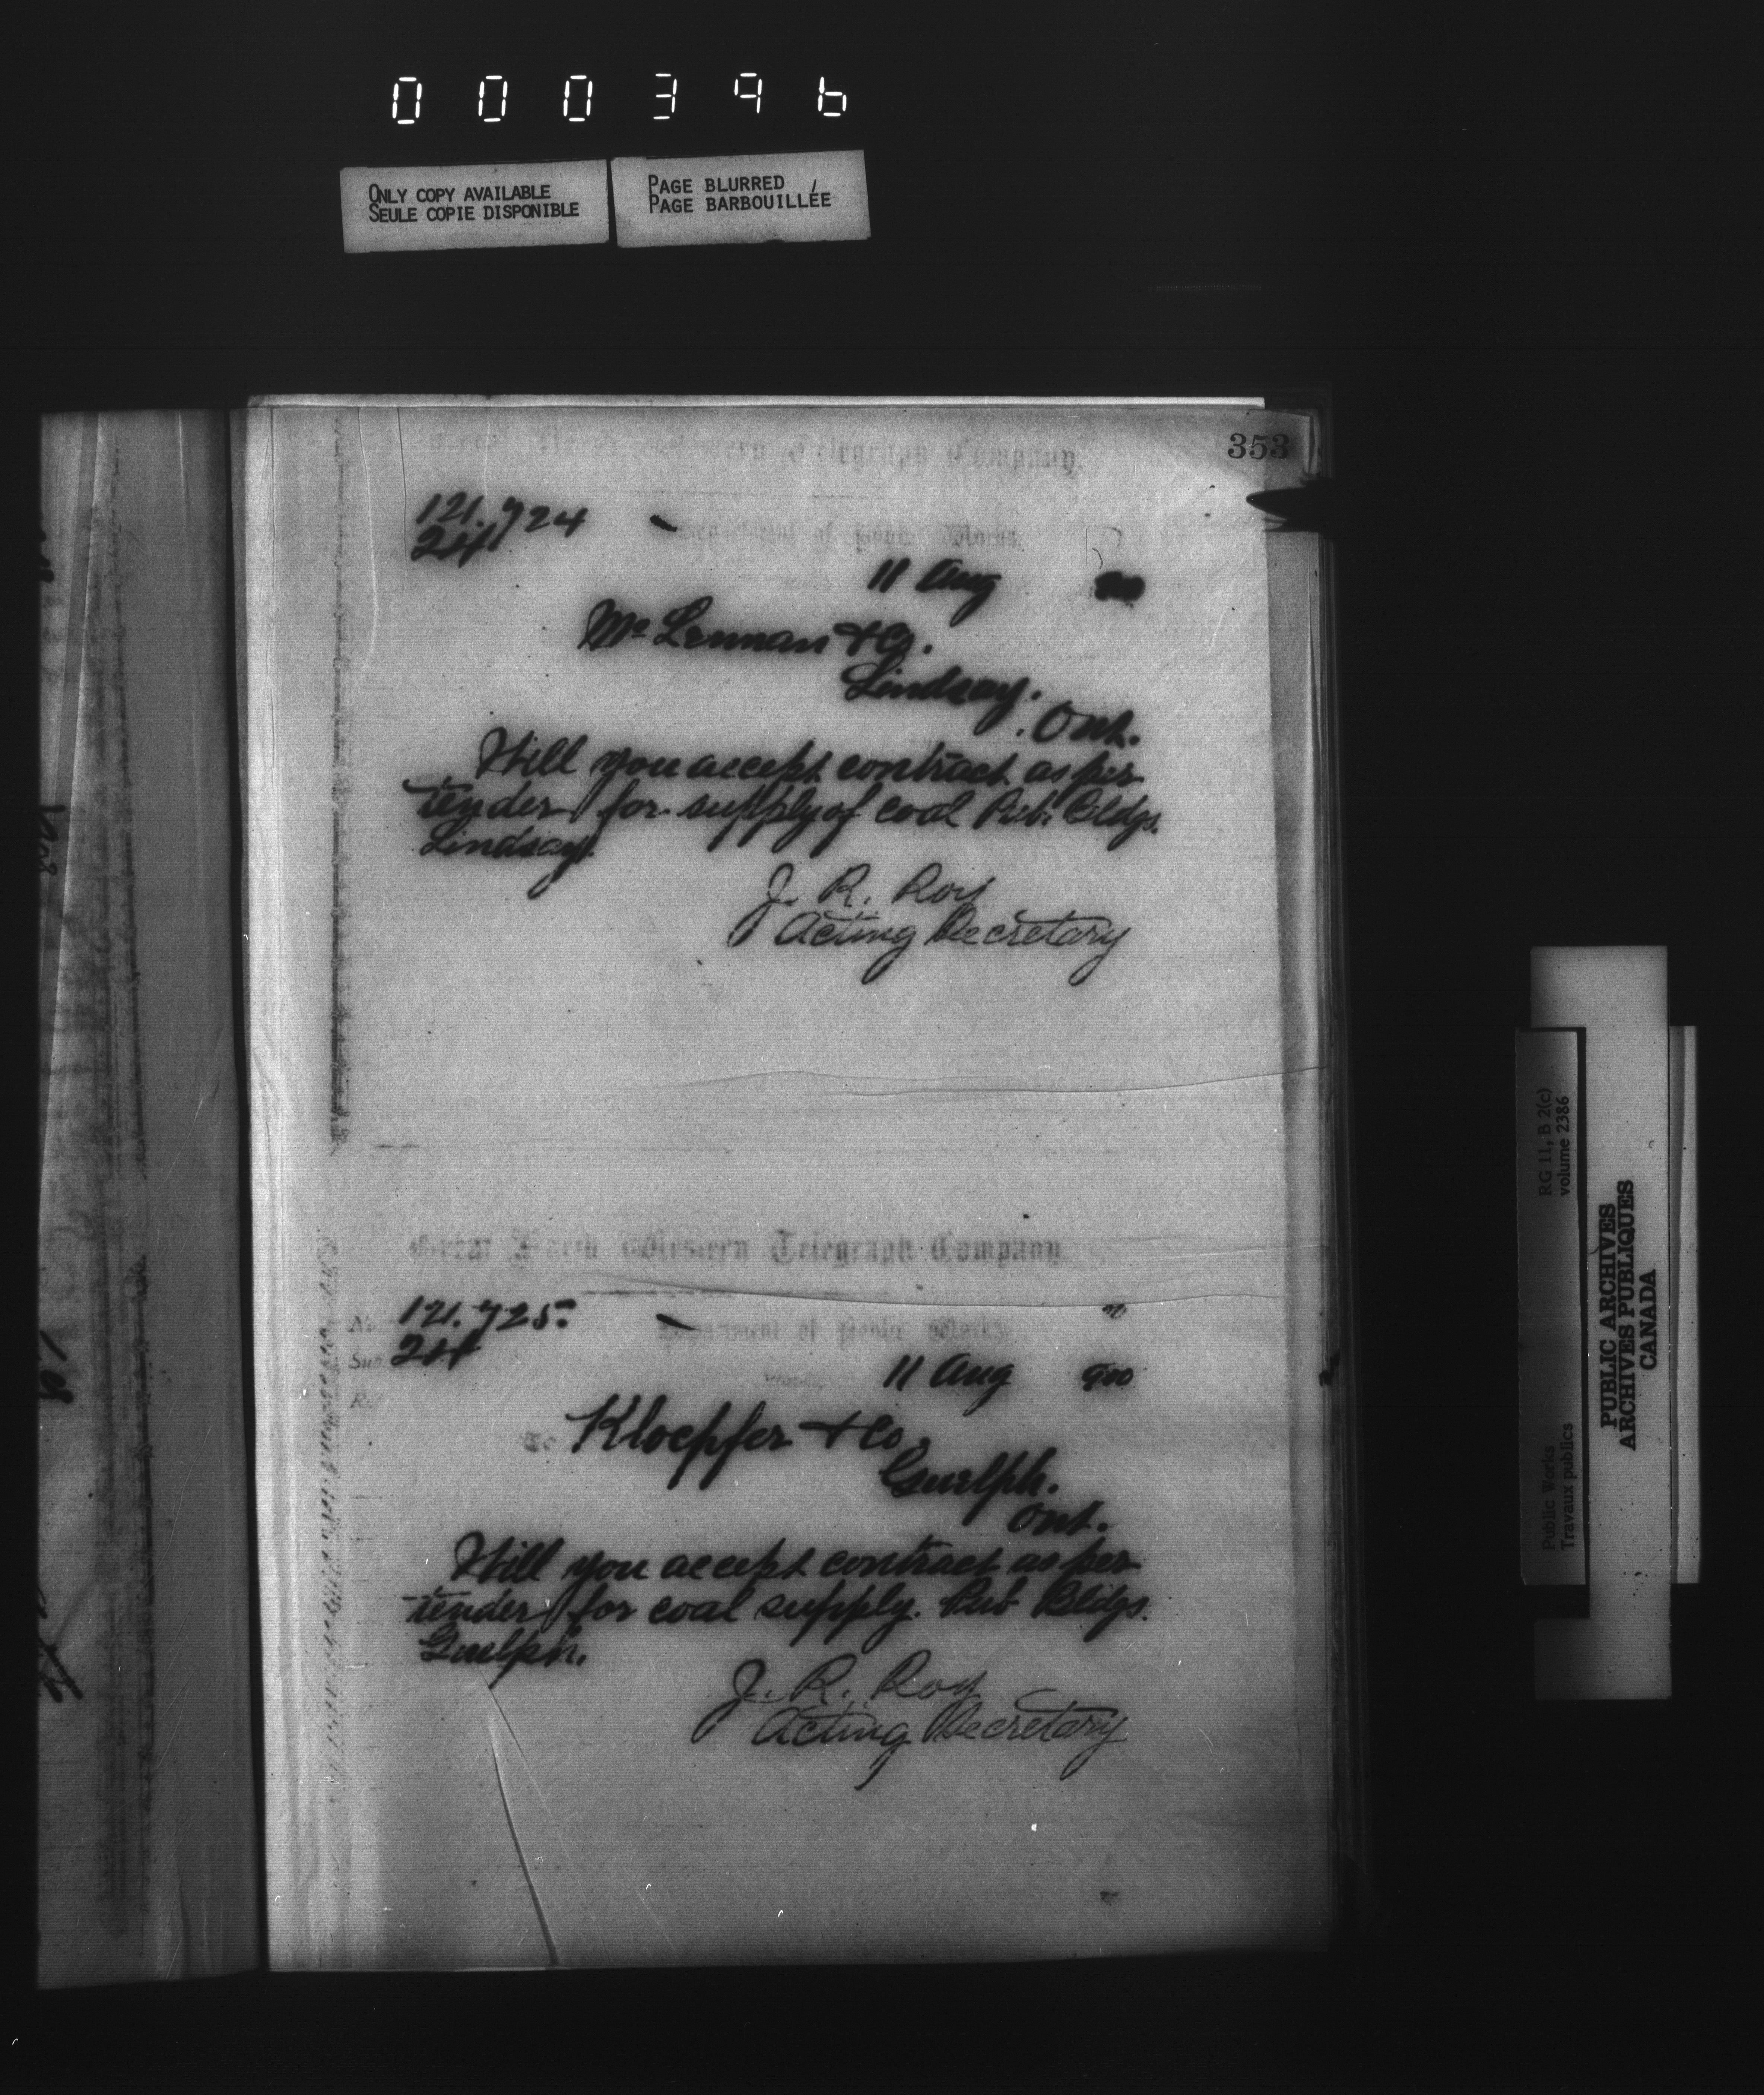 000396
ONLY COPY AVAILABLE
SEULE COPIE DISPONIBLE
PAGE BLURRED
PAGE BARBOUILLÉE
353
Western Telegraph Company.
121.724
Department of Public Works
11 Aug
McLennan & Co.
Lindsay.
Ont.
Will you accept contract as per
tender for supply of coal Pub. Bldgs.
Lindsay.
J. R. Roy
Acting Secretary
Great North Western Telegraph Company
No. 121.725
Department of Public Works
Sub
11 Aug 900
To Kloepfer & Co.
Guelph.
Ont.
Will you accept contract as per
tender for coal supply. Pub Bldgs.
Guelph.
J. R. Roy
Acting Secretary
RG 11, B 2(c)
volume 2386
Public Works
Travaux publics
PUBLIC ARCHIVES
ARCHIVES PUBLIQUES
CANADA